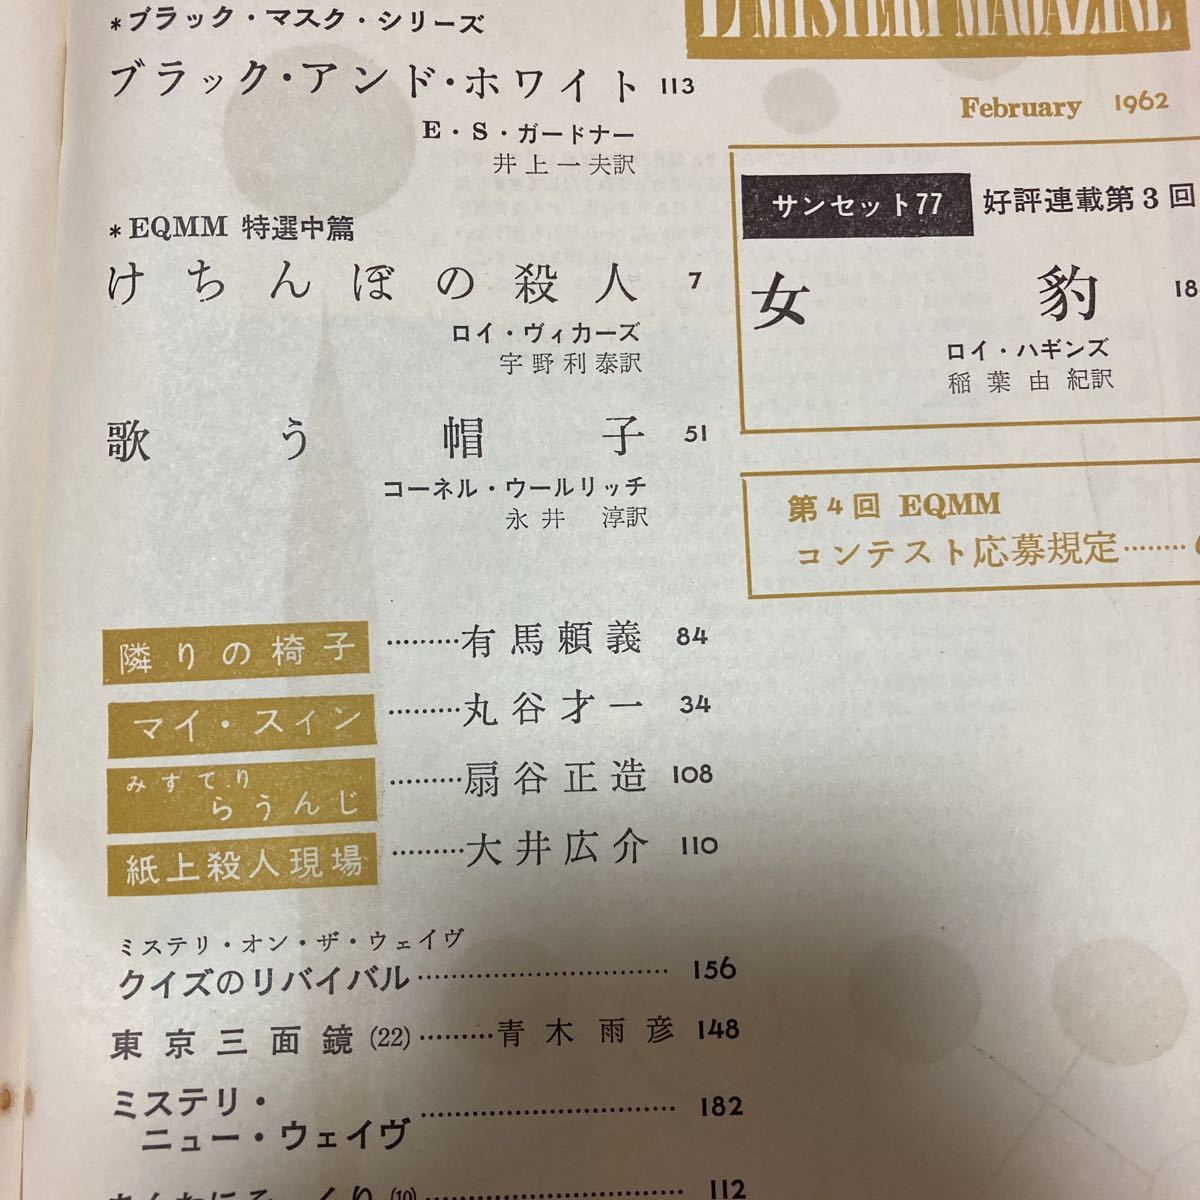 *ブラック・マスク・シリーズ
ブラック・アンド・ホワイト 113
E・S・ガードナー
井上一夫訳
*EQMM 特選中篇
けちんぼの殺人 7
ロイ・ヴィカーズ
宇野利泰訳
歌う帽子 51
コーネル・ウールリッチ
永井 淳訳
隣りの椅子………有馬頼義 84
マイ・スィン………丸谷才一 34
みすてり
らうんじ………扇谷正造 108
紙上殺人現場………大井広介 110
ミステリ・オン・ザ・ウェイヴ
クイズのリバイバル………………………… 156
東京三面鏡(22)………青木雨彦 148
ミステリ・
ニュー・ウェイヴ………………………… 182
(10)………………………… 112
MYSTERY MAGAZINE
February 1962
サンセット77 好評連載第3回
女豹 18
ロイ・ハギンズ
稲葉由紀訳
第4回 EQMM
コンテスト応募規定………